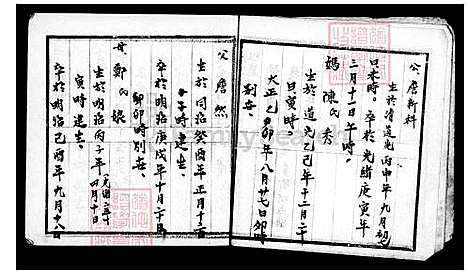 公 詹新科
生於清道光丙申年九月初七
日未時。卒於光緒庚寅年
三月十一日午時。
媽 陳氏秀
生於道光乙巳年十二月二十
日寅時。
大正乙卯年八月廿七日卯時
別世。
公 詹然
生於同治癸酉年正月十二
子時建生。
卒於明治庚戌年十月二十
卯時別去。
母 鄭氏
生於明治丙子年 四月十日
寅時建生。
卒於明治己酉年九月十八